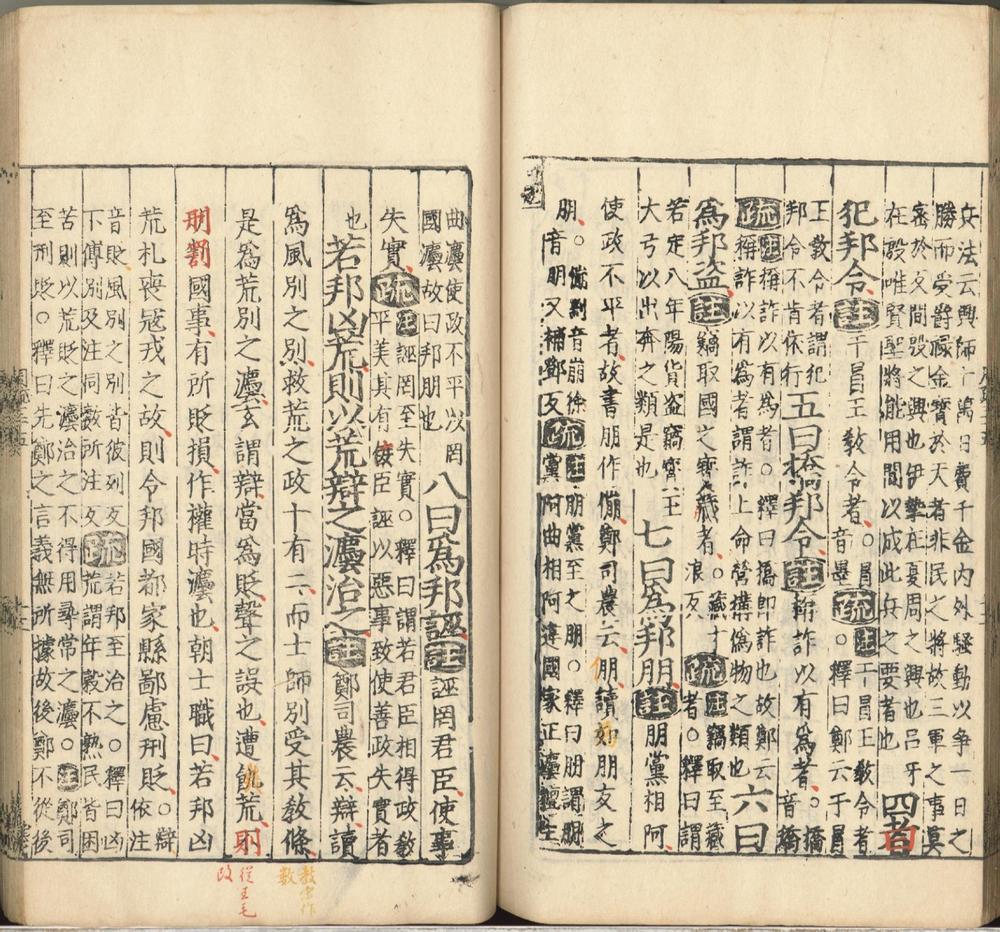 兵法云興師十萬日費千金内外騷動以争一日之
勝而受爵祿金寳於
天者非民之將故三軍之事莫
密於
反間殷之興也伊摯在夏周之興也吕牙
在殷唯賢聖將能用間以成此兵之要者也
四曰
犯邦令註干冒王教令者音墨疏註干冒王教令者
○釋曰鄭云干冒
王教令者謂犯
邦令不肯依行
五曰撟邦令註稱詐以有為者○撟音矯
疏註稱詐以有為者○釋曰撟即詐也故鄭云
稱詐以有為者謂詐上命營構偽物之類也
六曰
為邦盗註竊取國之寳藏者○藏才浪反疏註竊取至藏者○釋曰謂
若定八年陽貨盗竊寳玉
大弓以出奔之類是也
七曰為邦朋註朋黨相阿
使政不平者故書朋作傰鄭司農云朋讀如朋友之
朋○傰劉音崩徐音朋又補鄧反疏註朋黨至之朋○釋曰朋謂朋
黨阿曲相阿違國家正灋擅生
曲灋使政不平以罔
國灋故曰邦朋也
八曰為邦誣註誣罔君臣使事
失實疏註誣罔至失實○釋曰謂若君臣相得政教
平美其有佞臣誣以惡事致使善政失實者
也
若邦凶荒則以荒辯之灋治之註鄭司農云辯讀
為風別之別救荒之政十有二而士師別受其教條
是為荒別之灋玄謂辯當為貶聲之誤也遭飢荒則
刑罰國事有所貶損作權時灋也朝士職曰若邦凶
荒札喪寇戎之故則令邦國都家縣鄙慮刑貶○辯依注
音貶風別之別皆彼列反
下傅別及注同數所注反
疏若邦至治之○釋曰凶
荒謂年穀不熟民皆困
苦則以荒貶之灋治之不得用尋常之灋○註鄭司
至刑貶○釋曰先鄭之言義無所據故後鄭不從後
教宋作
數
從王毛
改